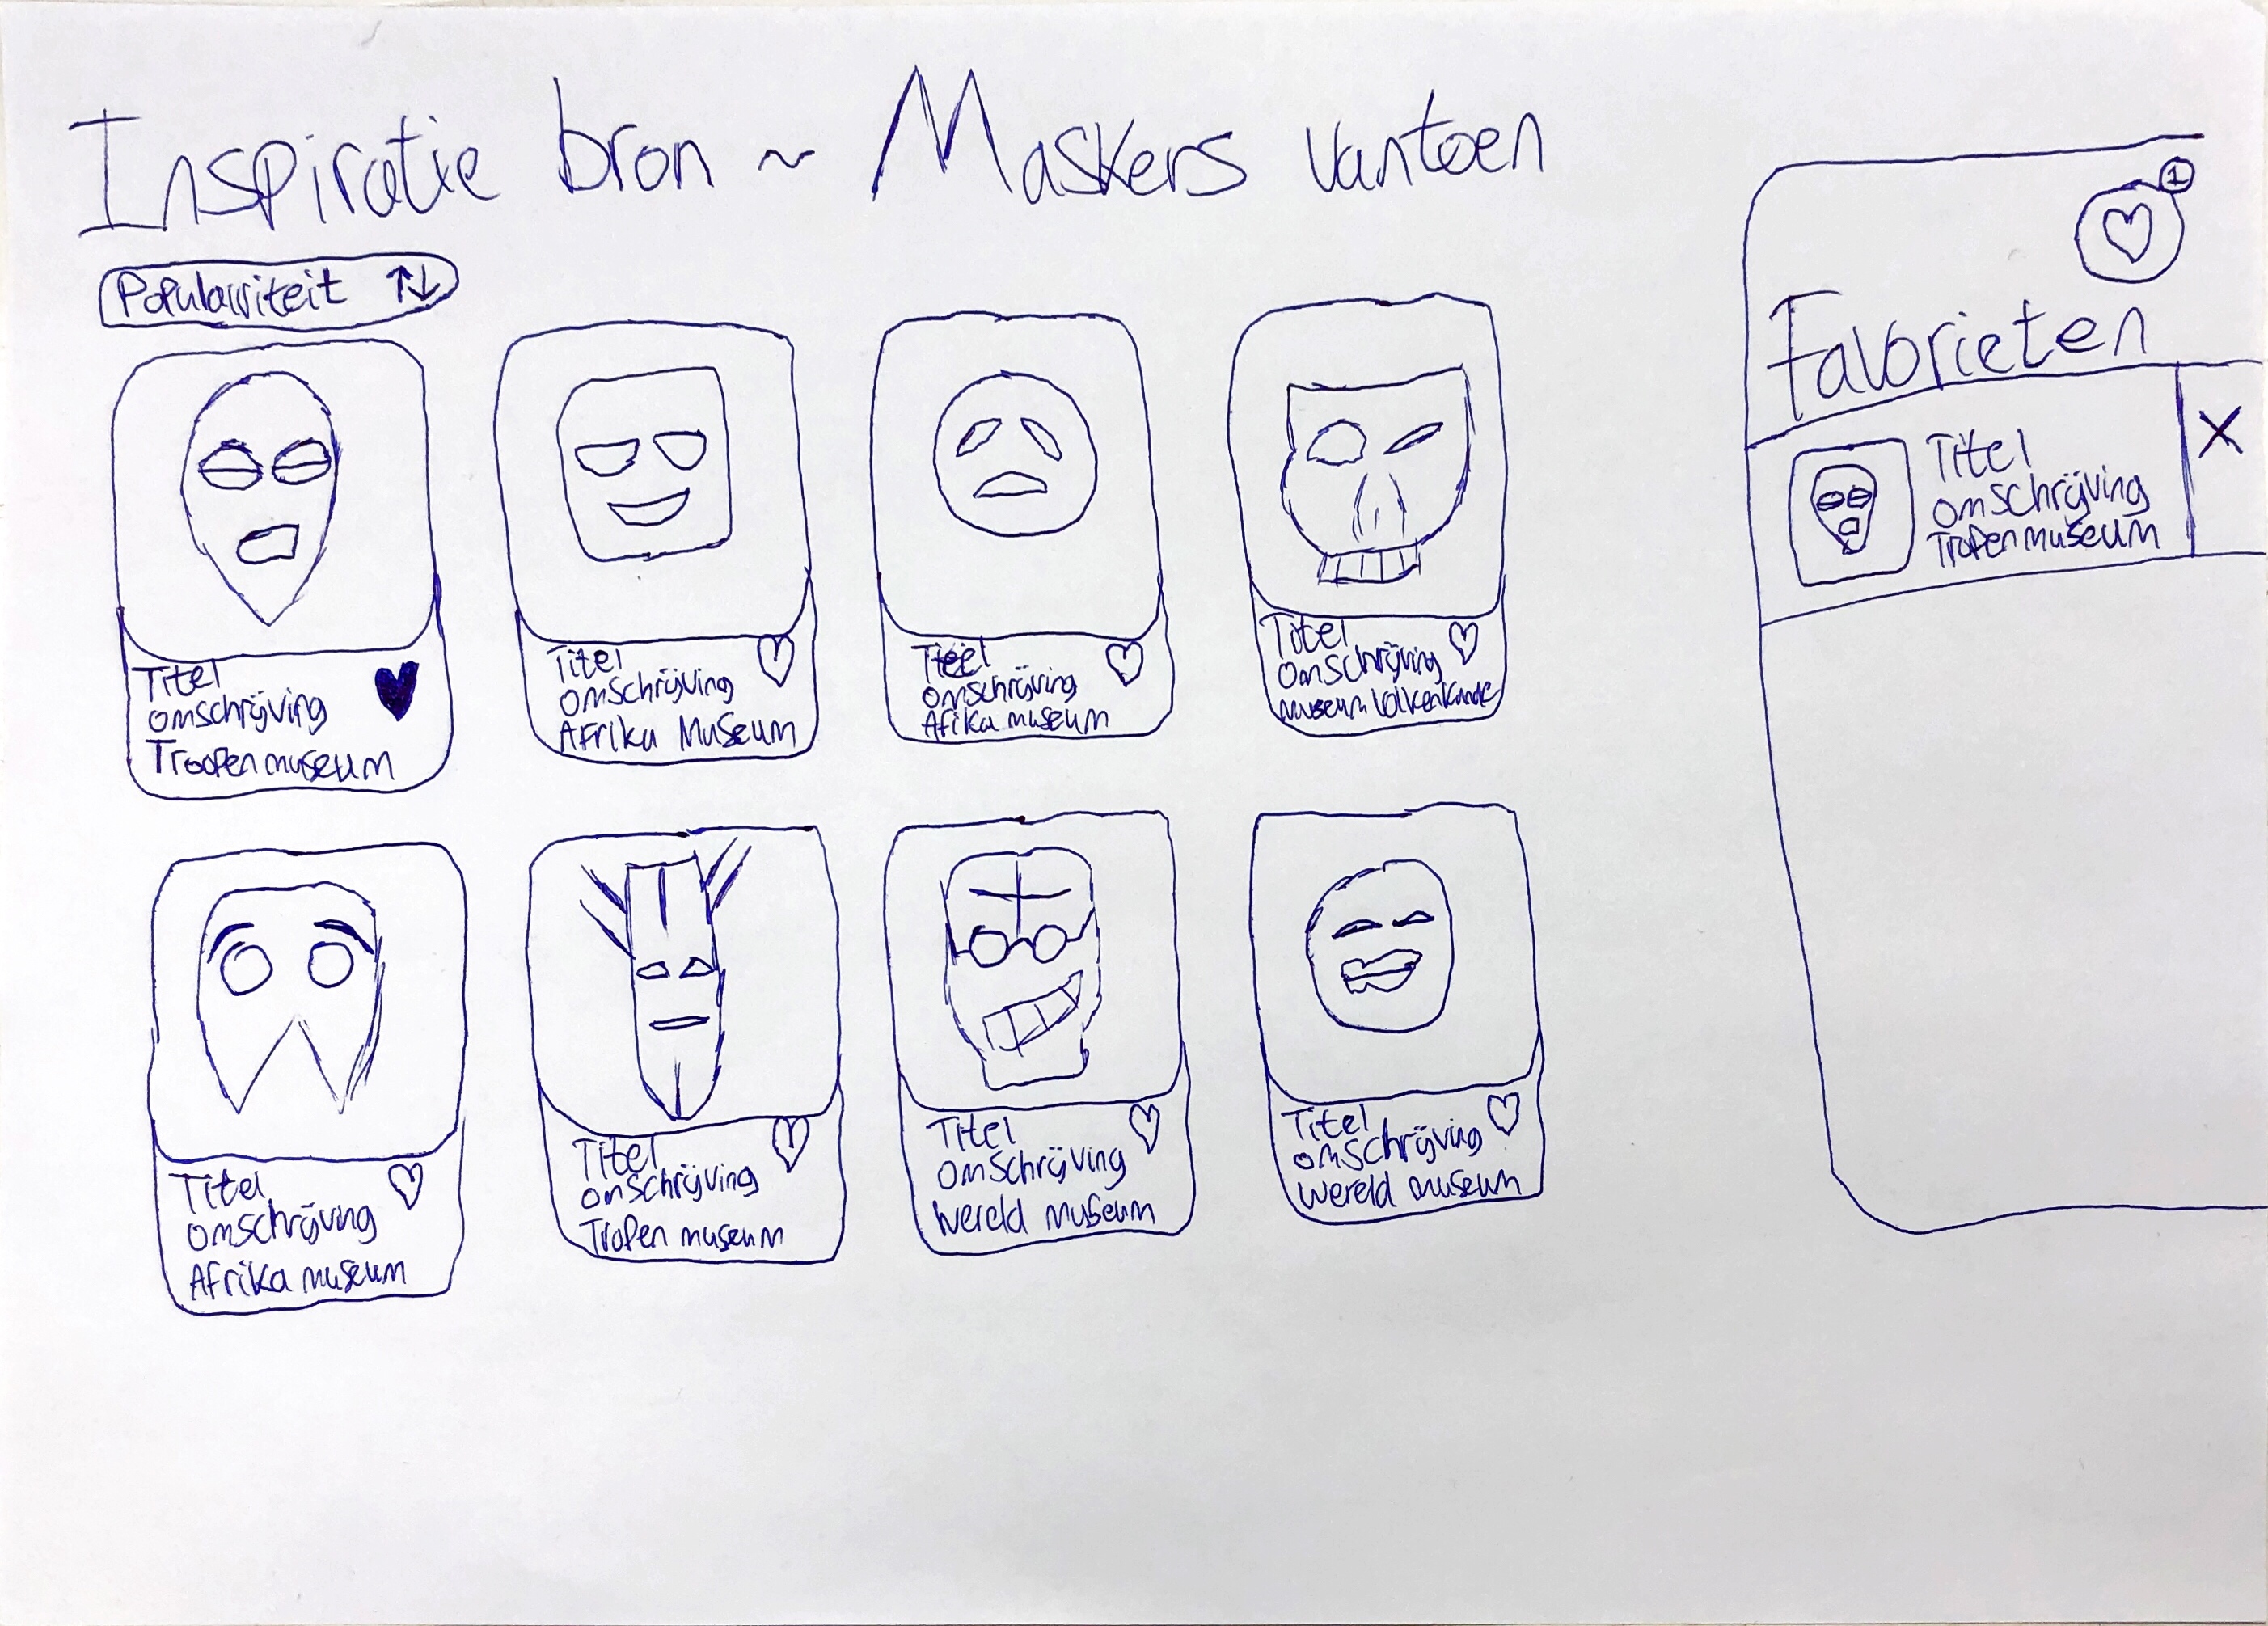 Inspiratie bron ~ Maskers van toen
Populairiteit ↑↓
Titel
omschrijving
Troopen museum
Titel
omschrijving
Afrika Museum
Titel
omschrijving
Afrika museum
Titel
omschrijving
museum volkenkunde
Titel
omschrijving
Afrika museum
Titel
omschrijving
Tropen museum
Titel
omschrijving
wereld museum
Titel
omschrijving
wereld museum
1
Favorieten
Titel
omschrijving
Tropen museum
X